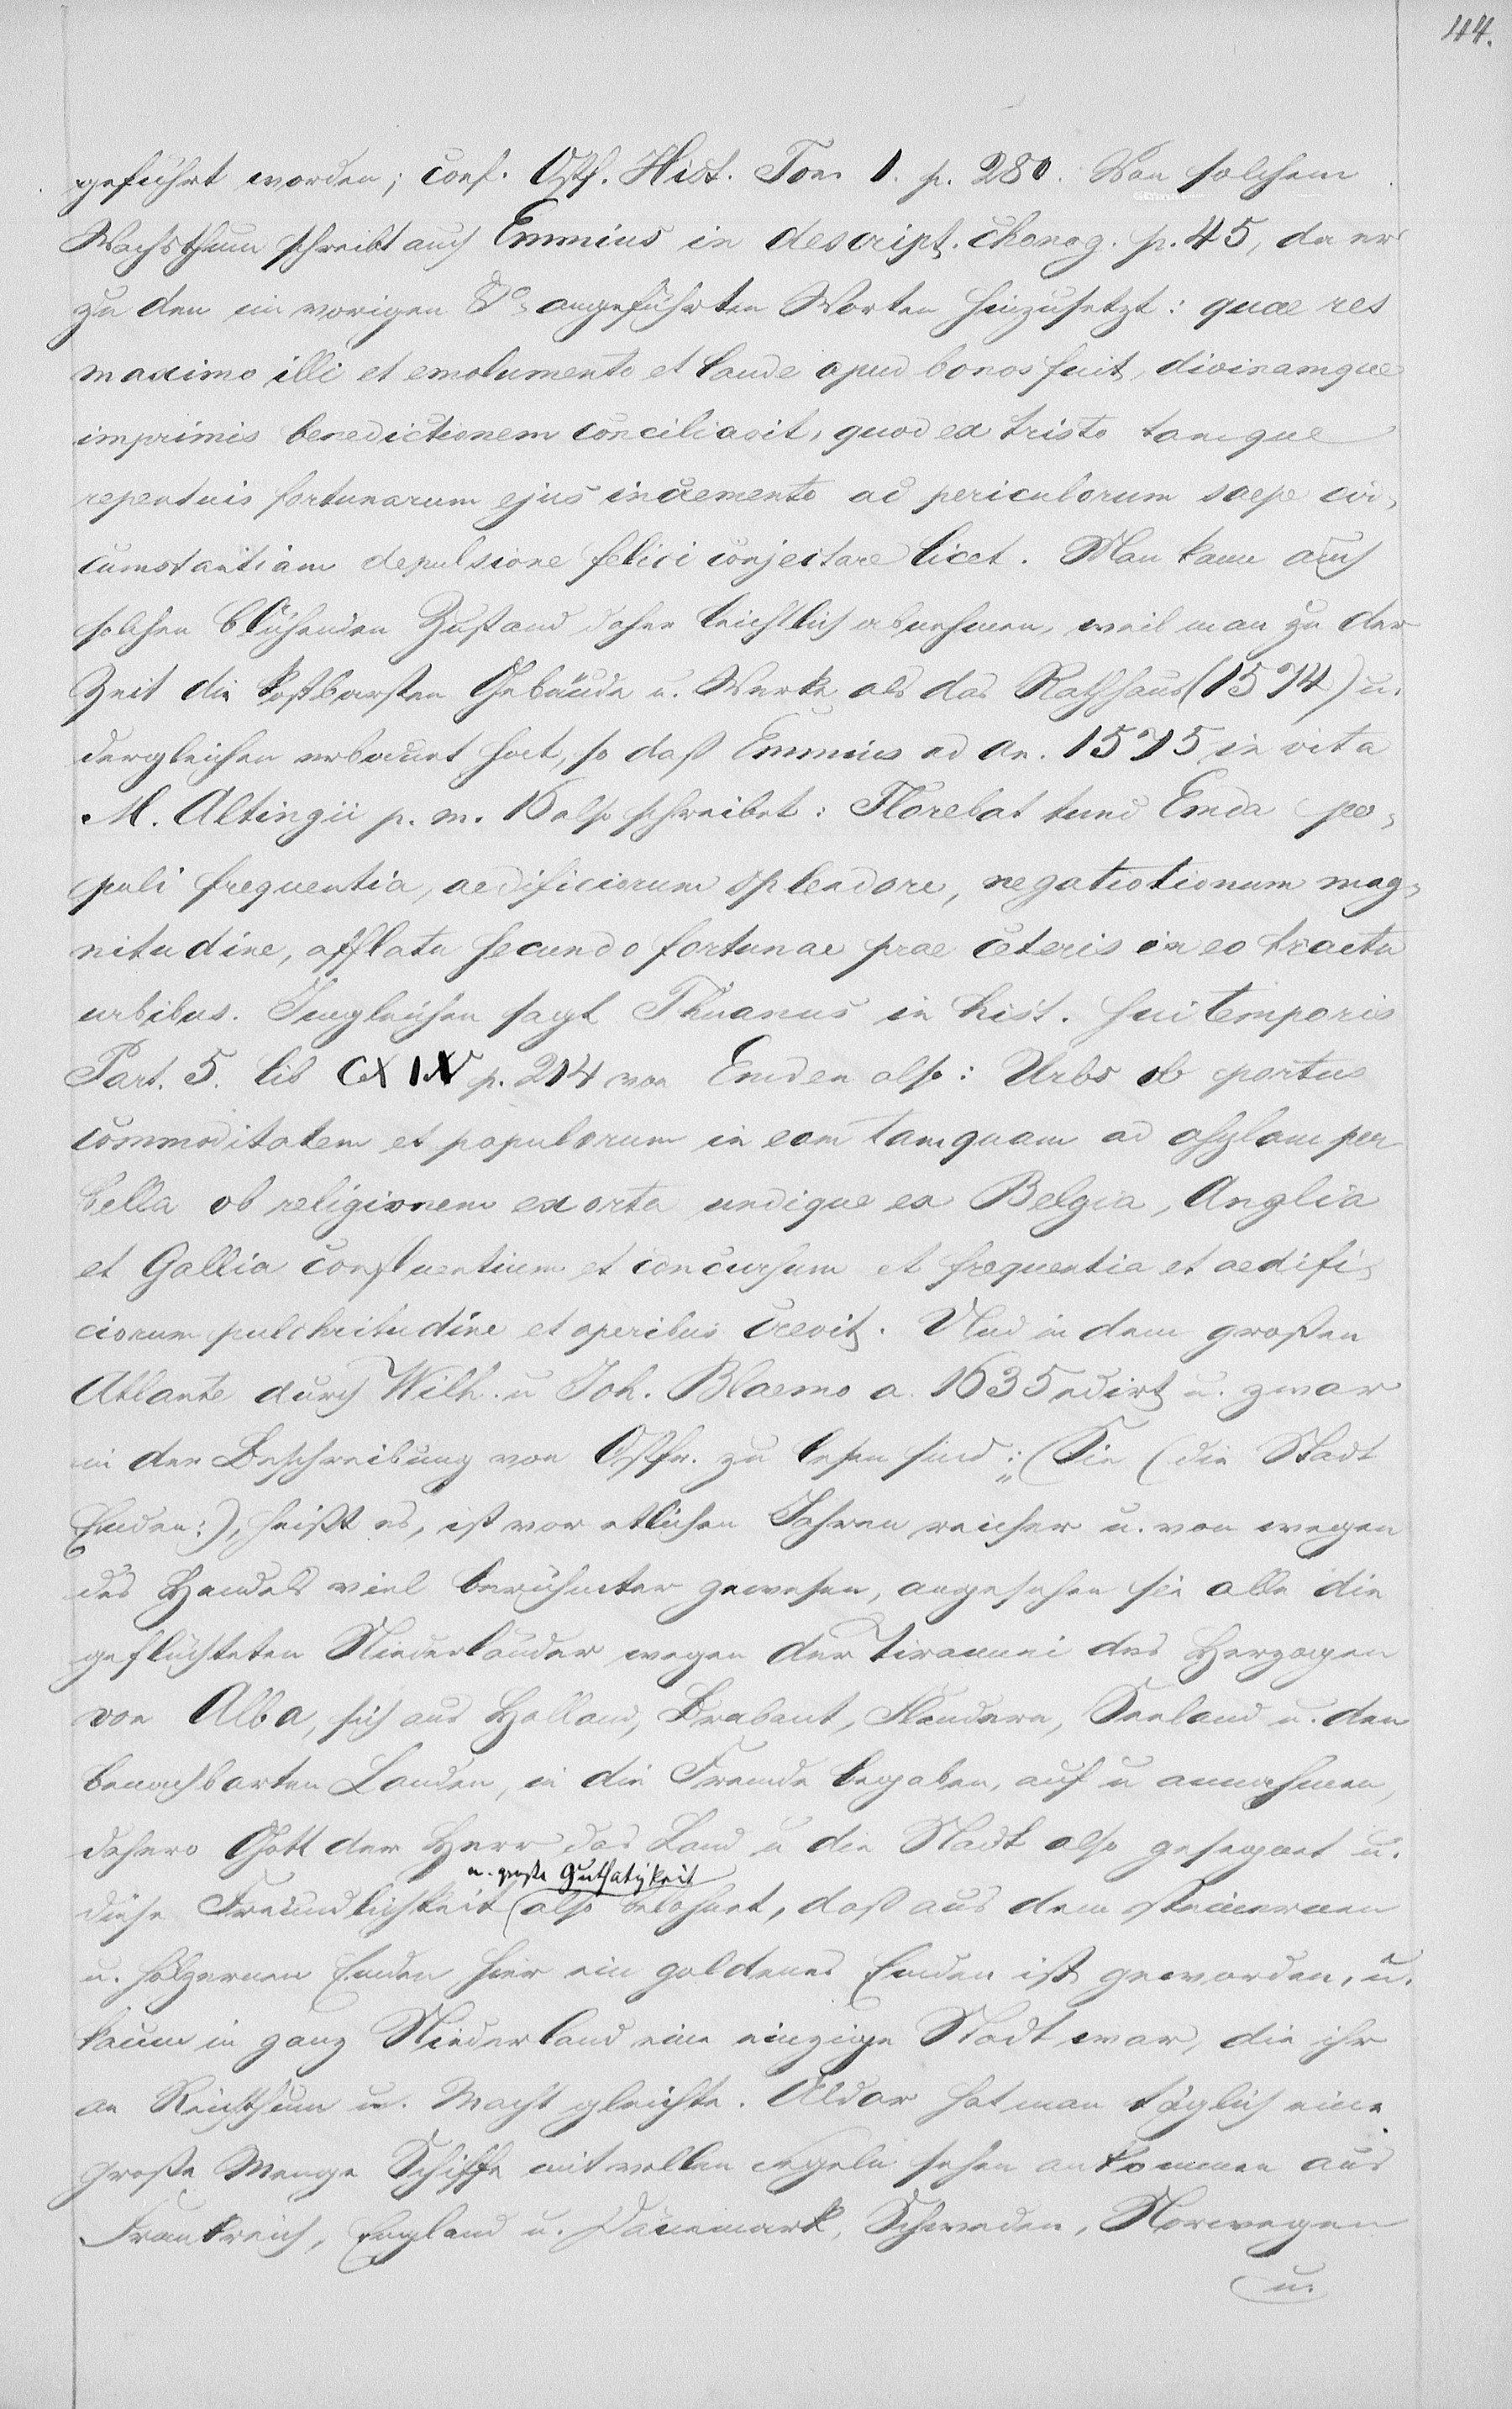 44.
geführt worden; conf. Ostf. Hist. Tom 1. p. 280. Von solchem
Wachsthum schreibt auch Emmius in descript. chorog. p. 45, da er
zu den im vorigen § angeführten Worten hinzusetzt: quae res
maximo illi et emolumento et laude apud bonos fuit, divinamque
imprimis benedictionem conciliavit, quod ex tristo tamque
repentuis fortunarum ejus incremento ac periculorum saepe cir-
cumstantiam depulsione felici conjectare licet. Man kann auch
solchen blühenden Zustand daher leichtlich abnehmen, weil man zu der
Zeit die kostbarsten Gebäude u. Werke als das Rathhaus (1574) u.
dergleichen erbauet hat, so daß Emmius ad an. 1575 in vita
M. Altingii p. m. 16 also schreibet: Florebat tunc Emda po-
puli frequentia, aedificiorum splendore, negatiotionum mag-
nitudine, afflatu secundo fortunae prae ceteris in eo tractu
urbibus. Imgleichen sagt Thuanus in hist. sui temporis
Part. 5. lib CXIX p. 214 von Emden also: Urbs ob portus
commoditatem et populorum in eam tamquam ad asylam per
bella ob religionem exorta undique ex Belgia, Anglia
et Gallia confluentium et concursum et frequentia et aedifi-
ciorum pulchritudine et operibus crevit. Und in dem großen
Atlante durch Wilh. u Joh. Blaemo a. 1635 edirt u. zwar
in der Beschreibung von Ostfr. zu lesen sind: (Sie (die Stadt
Emden:), heißt es, ist vor etlichen Jahren reicher u. von wegen
des Handels viel berühmter gewesen, angesehen sie alle die
geflüchteten Niederländer wegen der Tirannei des Herzogen
von Alba, sich aus Holland, Brabant, Flandern, Seeland u. den
benachbarten Landen, in die Fremde begaben, auf u annahmen,
dahero Gott der Herr das Land u die Stadt also gesegnet u.
u. große Guthatigkeit
diese Freundlichkeit also belohnet, daß aus dem steinernen
u. hölzernen Emden hier ein goldenes Emden ist geworden, u.
kaum in ganz Niederland eine einzige Stadt war, die ihr
an Reichthum u. Macht gleichte. Aldar hat man täglich eine
große Menge Schiffe mit vollen segeln sehen ankommen aus
Frankreich, England u. Dänemark, Schweden, Norwegen
u.